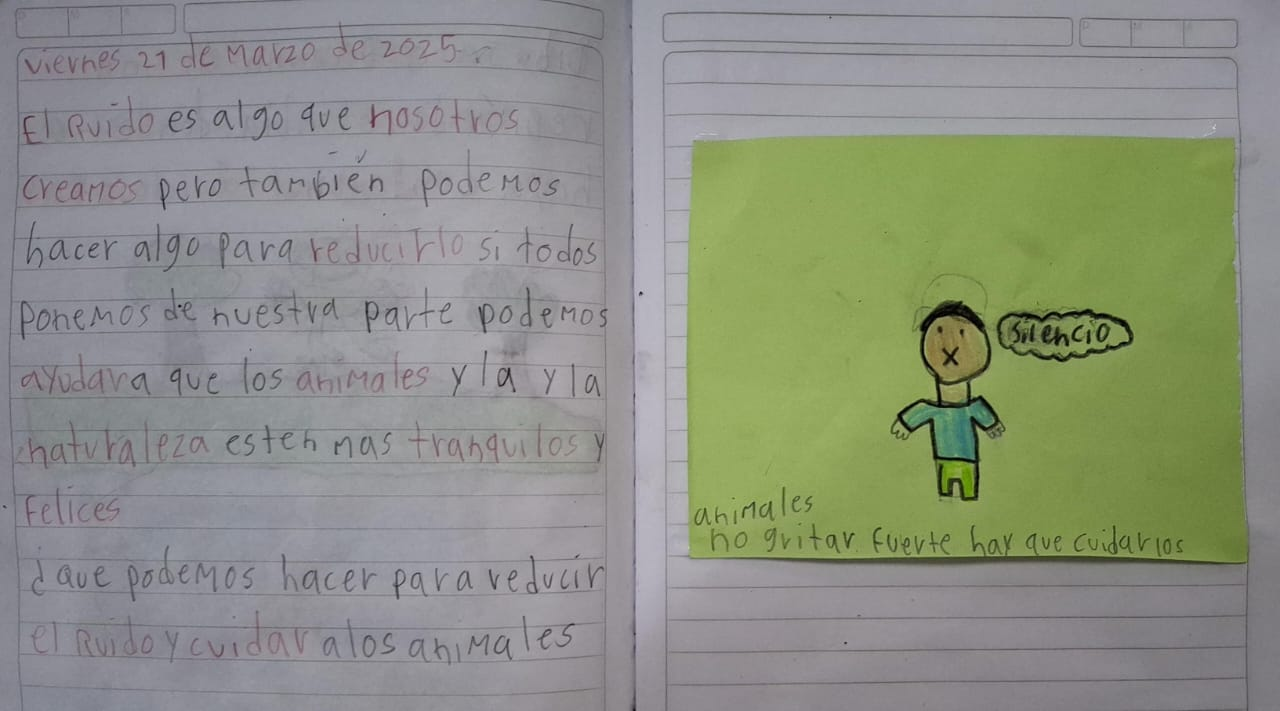 viernes 21 de Marzo de 2025.
El Ruido es algo que nosotros
creamos pero también podemos
hacer algo para reducirlo si todos
ponemos de nuestra parte podemos
ayudara que los animales y la y la
naturaleza esten mas tranquilos y
Felices
¿que podemos hacer para reducir
el Ruido y cuidar alos animales
silencio
animales
no gritar fuerte hay que cuidarlos